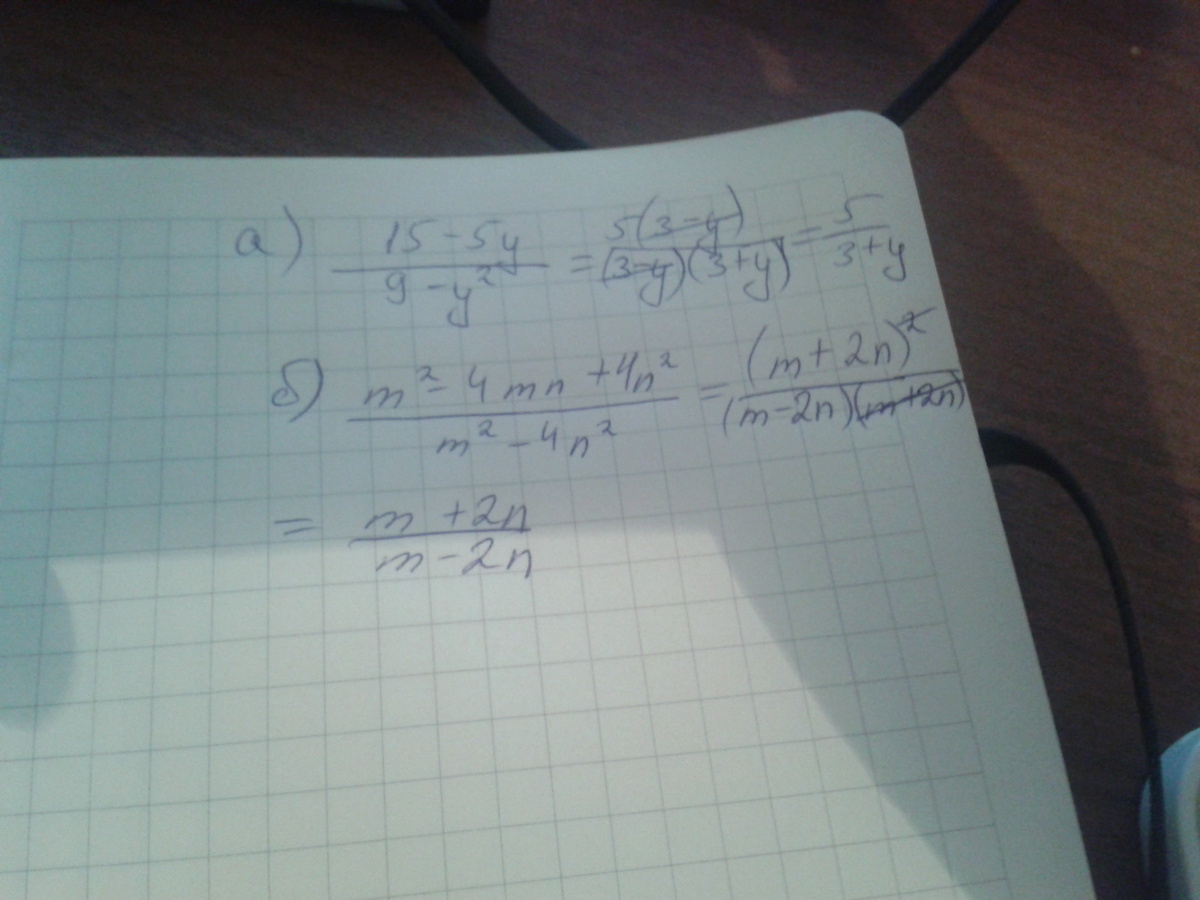 а) (15 - 5y)/(9 - y²) = 5(3 - y)/((3 - y)(3 + y)) = 5/(3 + y)
б) (m² - 4mn + 4n²)/(m² - 4n²) = (m + 2n)²/((m - 2n)(m + 2n))
= (m + 2n)/(m - 2n)